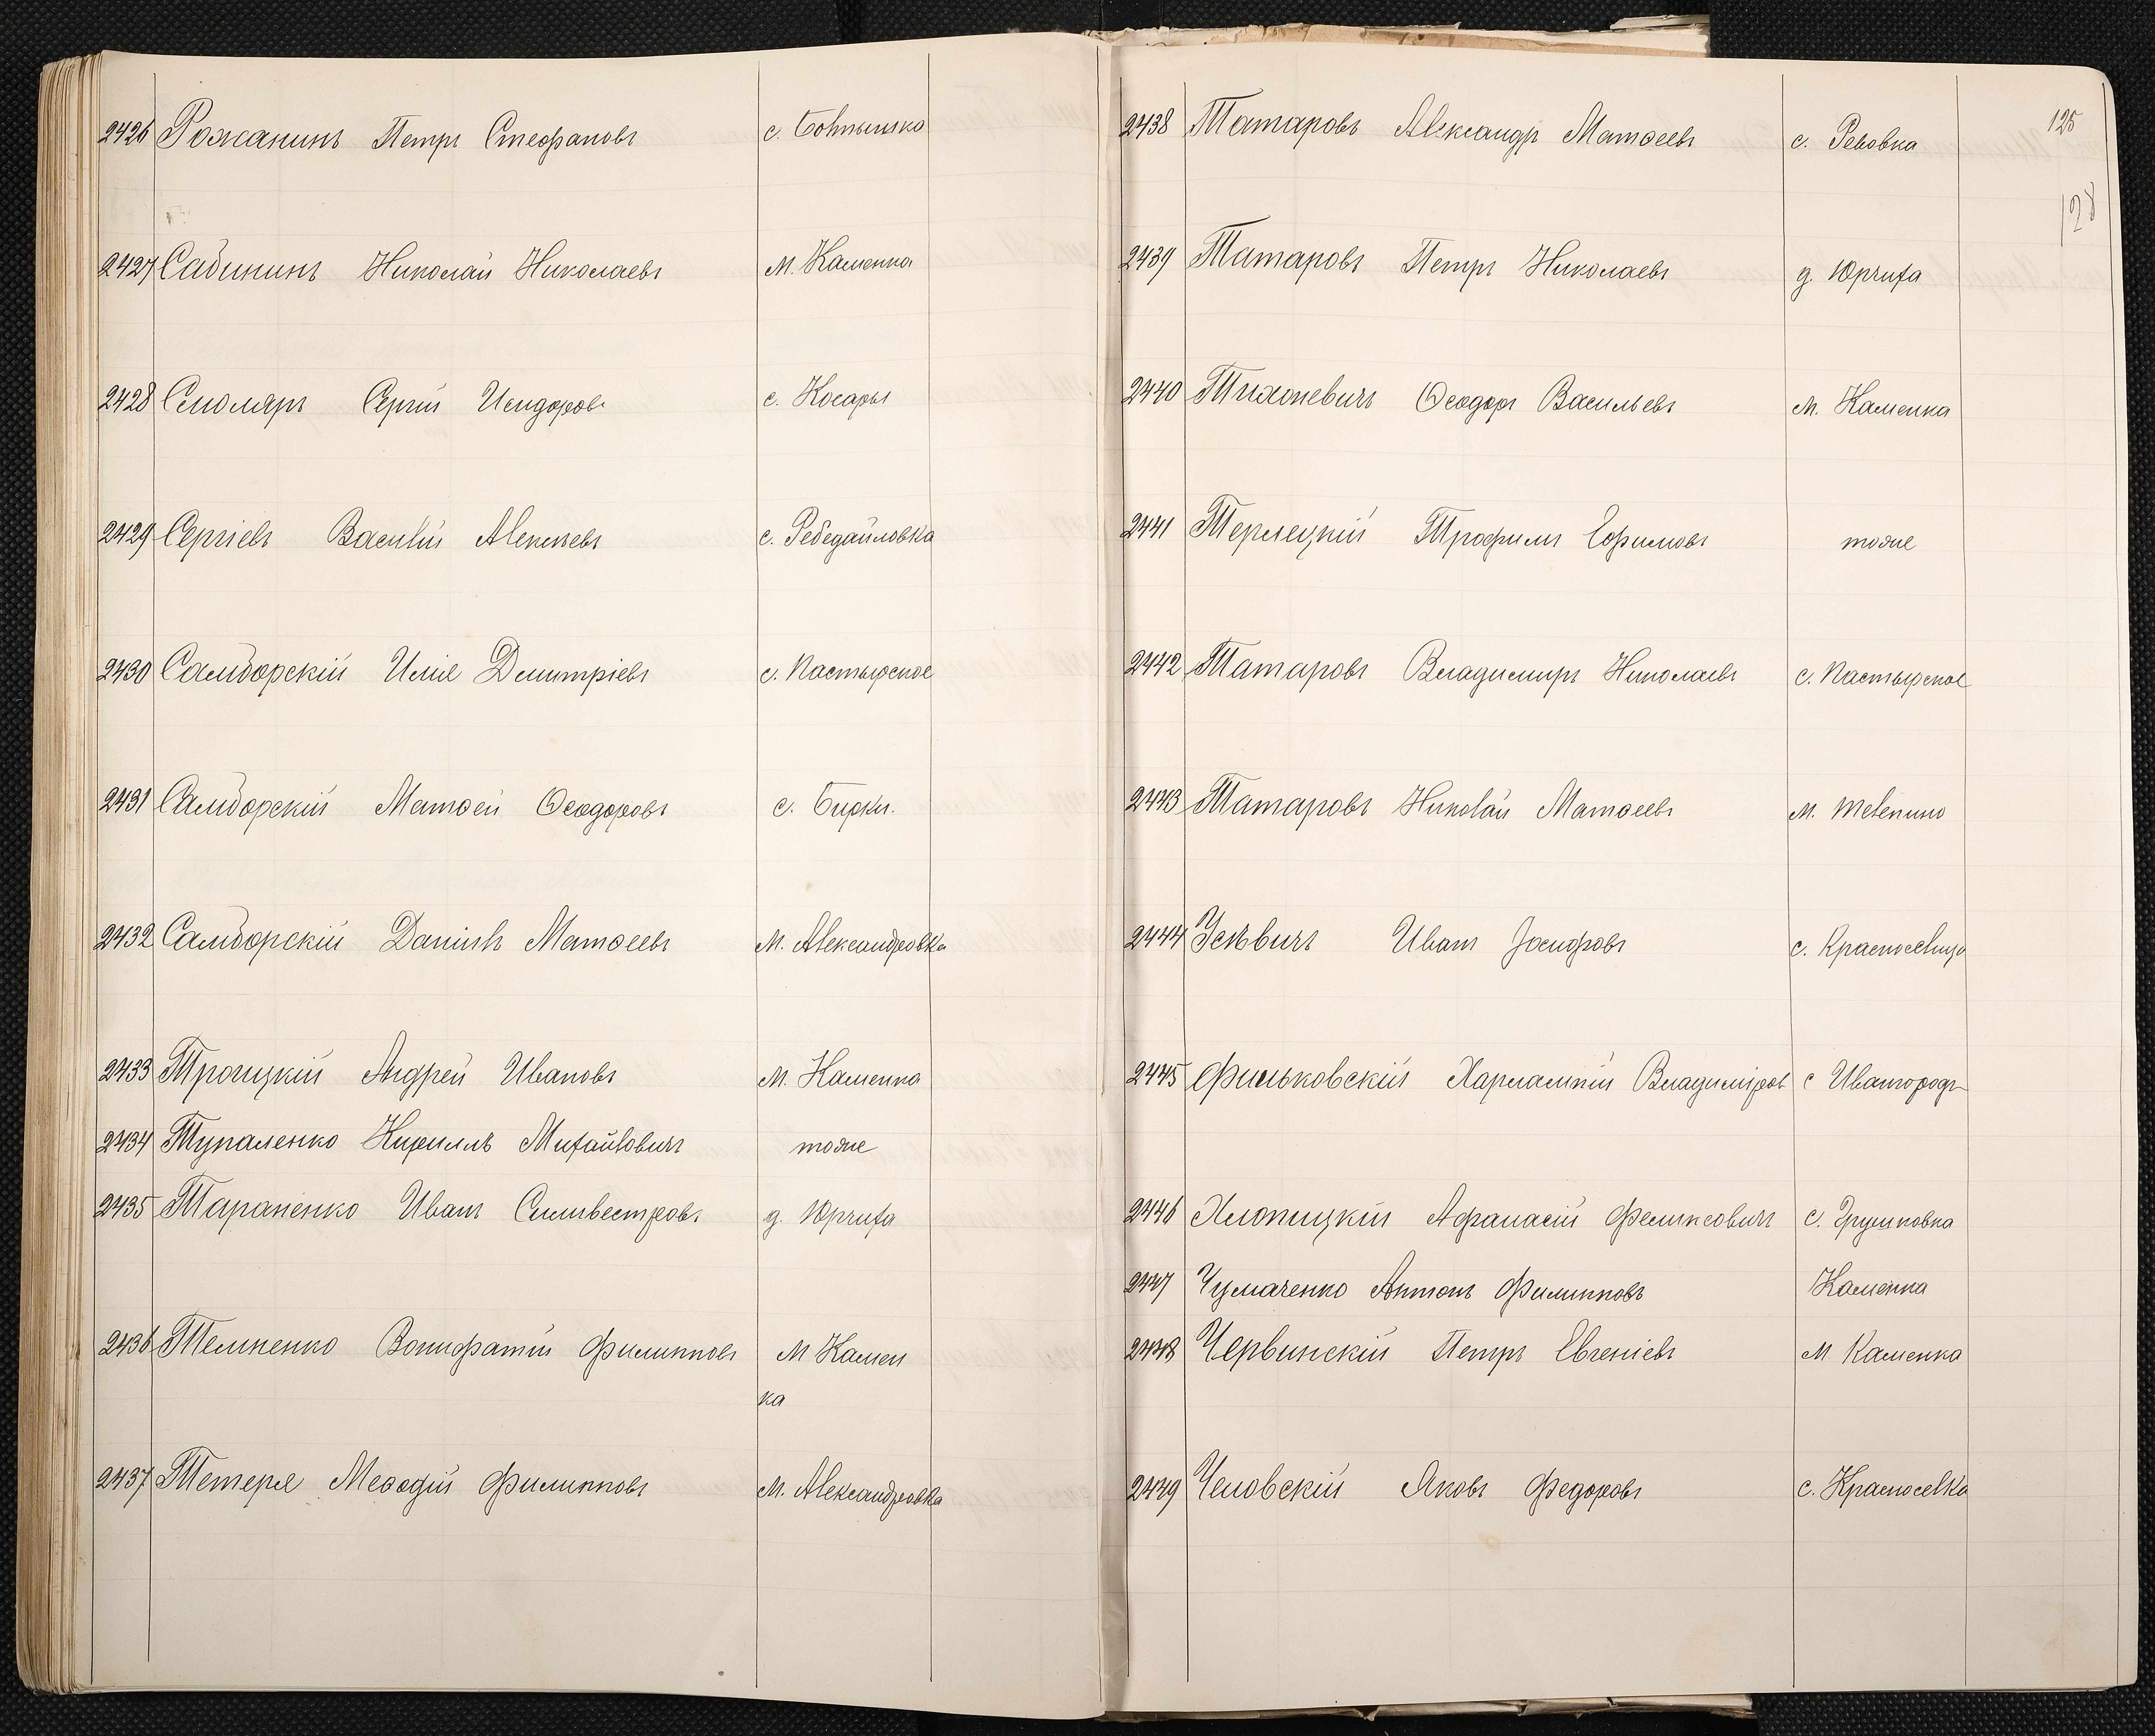 2426 Рожанинъ Петръ Стефановъ с. Болтышко
2427 Сабининъ Николай Николаевъ м. Каменка
2428 Смоляръ Сергій Исидоровъ с. Косары
2429 Сергіевъ Василій Алексѣевъ с. Ребедайловка
2430 Самборскій Илія Дмитріевъ с. Пастырское
2431 Самборскій Матѳей Ѳеодоровъ с. Бирки.
2432 Самборскій Даніилъ Матѳеевъ м. Александровка
2433 Троицкій Андрей Ивановъ м. Каменка
2434 Тупаленко Кириллъ Михайловичъ тоже
2435 Тараненко Иванъ Сильвестровъ д. Юрчиха
2436 Темненко Вонифатій Филипповъ м Камен
ка
2437 Тетеря Меѳодій Филипповъ м. Александровка
125
128
2438 Татаровъ Александръ Матѳеевъ с. Ревовка
2439 Татаровъ Петръ Николаевъ д. Юрчиха
2440 Тихоневичъ Ѳеодоръ Васильевъ м. Каменка
2441 Терлецкій Трофимъ Ефимовъ тоже
2442 Татаровъ Владимиръ Николаевъ с. Пастырское
2443 Татаровъ Николай Матѳеевъ м. Телепино
2444 Усѣвичъ Иванъ Іосифовъ с. Красноселица
2445 Фильковскій Харлампій Владиміров с Ивангородъ
2446 Хлопицкій Афанасій Феликсовичъ с. Грушковка
2447 Чумаченко Антонъ Филипповъ Каменка
2448 Червинскій Петръ Евгеніевъ м. Каменка
2449 Яковъ Федоровъ с. Красноселка